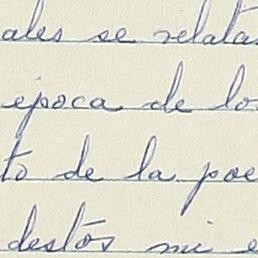 ales se relatas
época de los
to de la poe
destós mi e